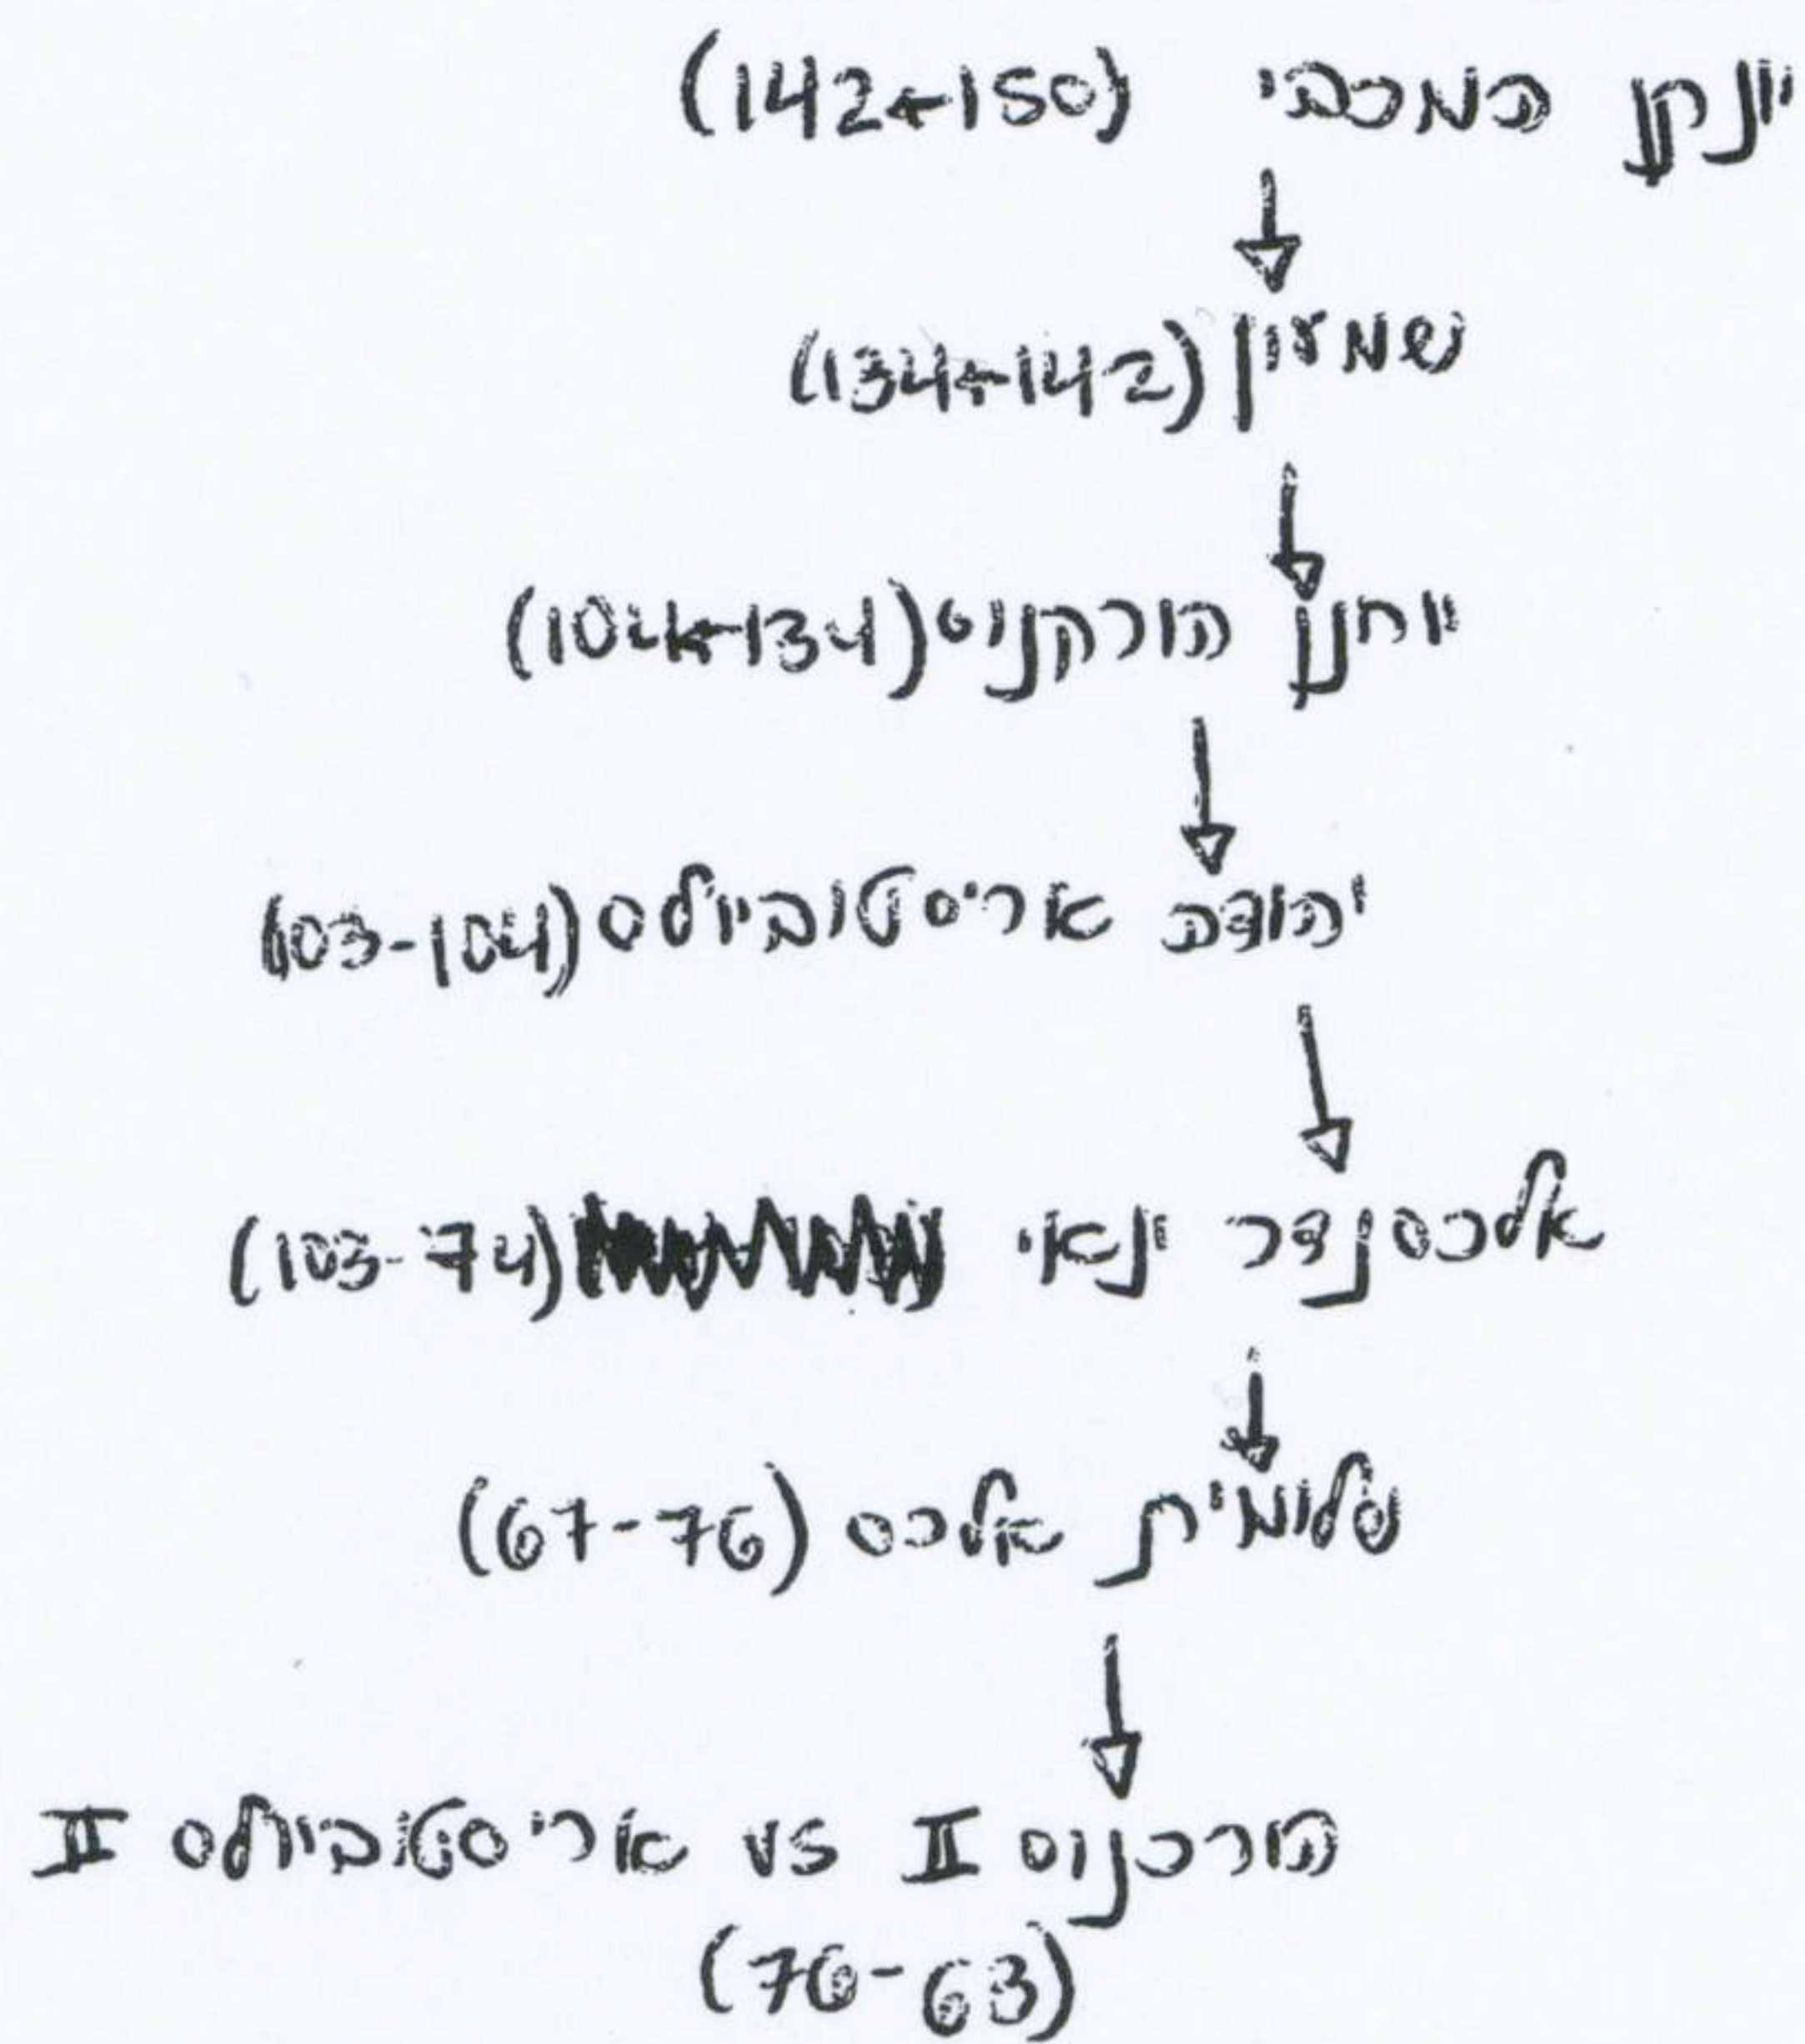 יונתן המכבי (142←150)
שמעון (134←142)
יוחנן הורקנוס (104←134)
יהודה אריסטוביולס (103-104)
אלכסנדר ינאי (103-74)
שלומית אלכס (67-76)
הורכנוס II vs אריסטוביולס II
(76-63)